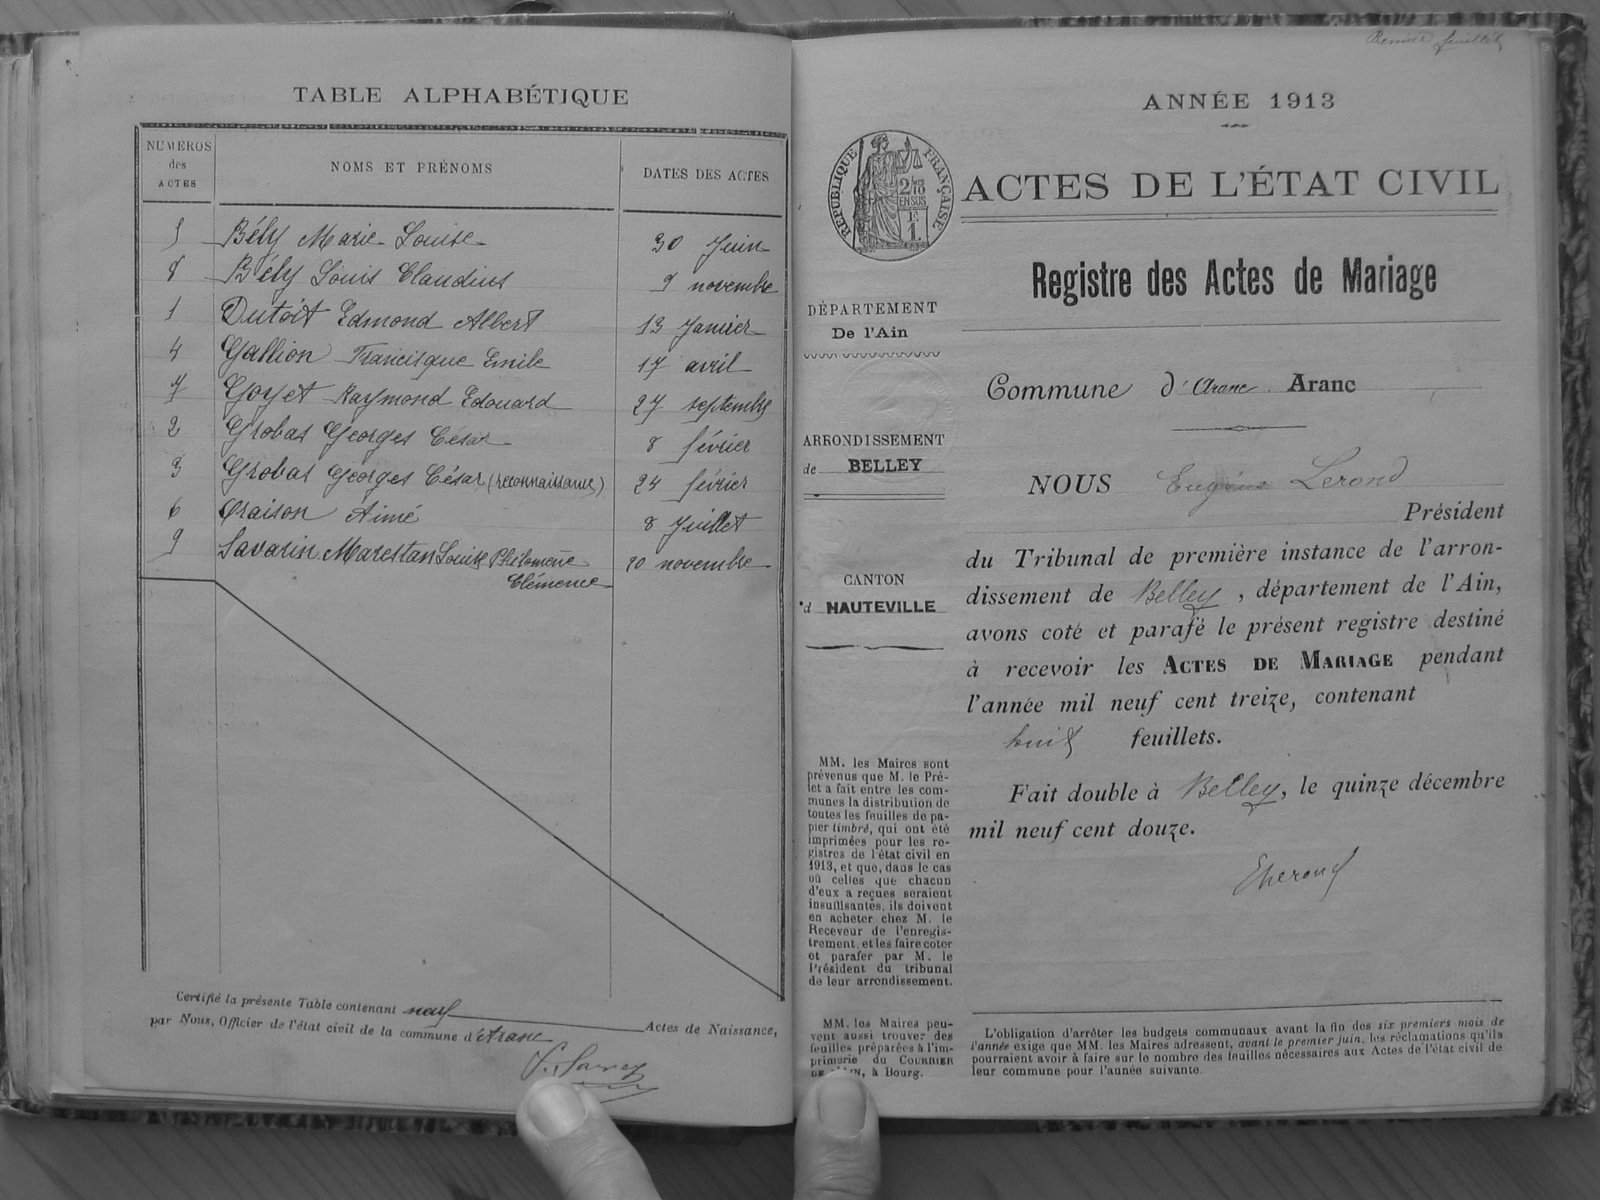 TABLE ALPHABÉTIQUE
NUMÉROS des ACTES
NOMS ET PRÉNOMS
DATES DES ACTES
5 Bély Marie Louise 30 Juin
8 Bély Louis Claudius 9 novembre
1 Dutoit Edmond Albert 13 Janvier
4 Gallion Francisque Emile 17 avril
7 Goyet Raymond Edouard 27 septembre
2 Grobas Georges César 8 février
3 Grobas Georges César (reconnaissance) 24 février
6 Oraison Aimé 8 Juillet
9 Savarin Marestan Louise Philomène 20 novembre
Clémence
Certifié la présente Table contenant neuf Actes de Naissance,
par Nous, Officier de l'état civil de la commune d'Aranc
Premier feuillet
ANNÉE 1913
RÉPUBLIQUE FRANÇAISE
2/10
EN SUS
1
ACTES DE L'ÉTAT CIVIL
Registre des Actes de Mariage
DÉPARTEMENT
De l'Ain
Commune d'Aranc Aranc
ARRONDISSEMENT
de BELLEY
NOUS Eugène Lerond
Président
CANTON
d HAUTEVILLE
du Tribunal de première instance de l'arron-
dissement de Belley, département de l'Ain,
avons coté et parafé le présent registre destiné
à recevoir les ACTES DE MARIAGE pendant
l'année mil neuf cent treize, contenant
huit feuillets.
Fait double à Belley, le quinze décembre
mil neuf cent douze.
MM. les Maires sont
prévenus que M. le Pré-
fet a fait entre les com-
munes la distribution de
toutes les feuilles de pa-
pier timbré, qui ont été
imprimées pour les re-
gistres de l'état civil en
1913, et que, dans le cas
où celles que chacun
d'eux a reçues seraient
insuffisantes, ils doivent
en acheter chez M. le
Receveur de l'enregis-
trement, et les faire coter
et parafer par M. le
Président du tribunal
de leur arrondissement.
MM. les Maires peu-
vent aussi trouver des
feuilles préparées à l'im-
primerie du COURRIER
DE L'AIN, à Bourg.
L'obligation d'arrêter les budgets communaux avant la fin des six premiers mois de
l'année exige que MM. les Maires adressent, avant le premier juin, les réclamations qu'ils
pourraient avoir à faire sur le nombre des feuilles nécessaires aux Actes de l'état civil de
leur commune pour l'année suivante.